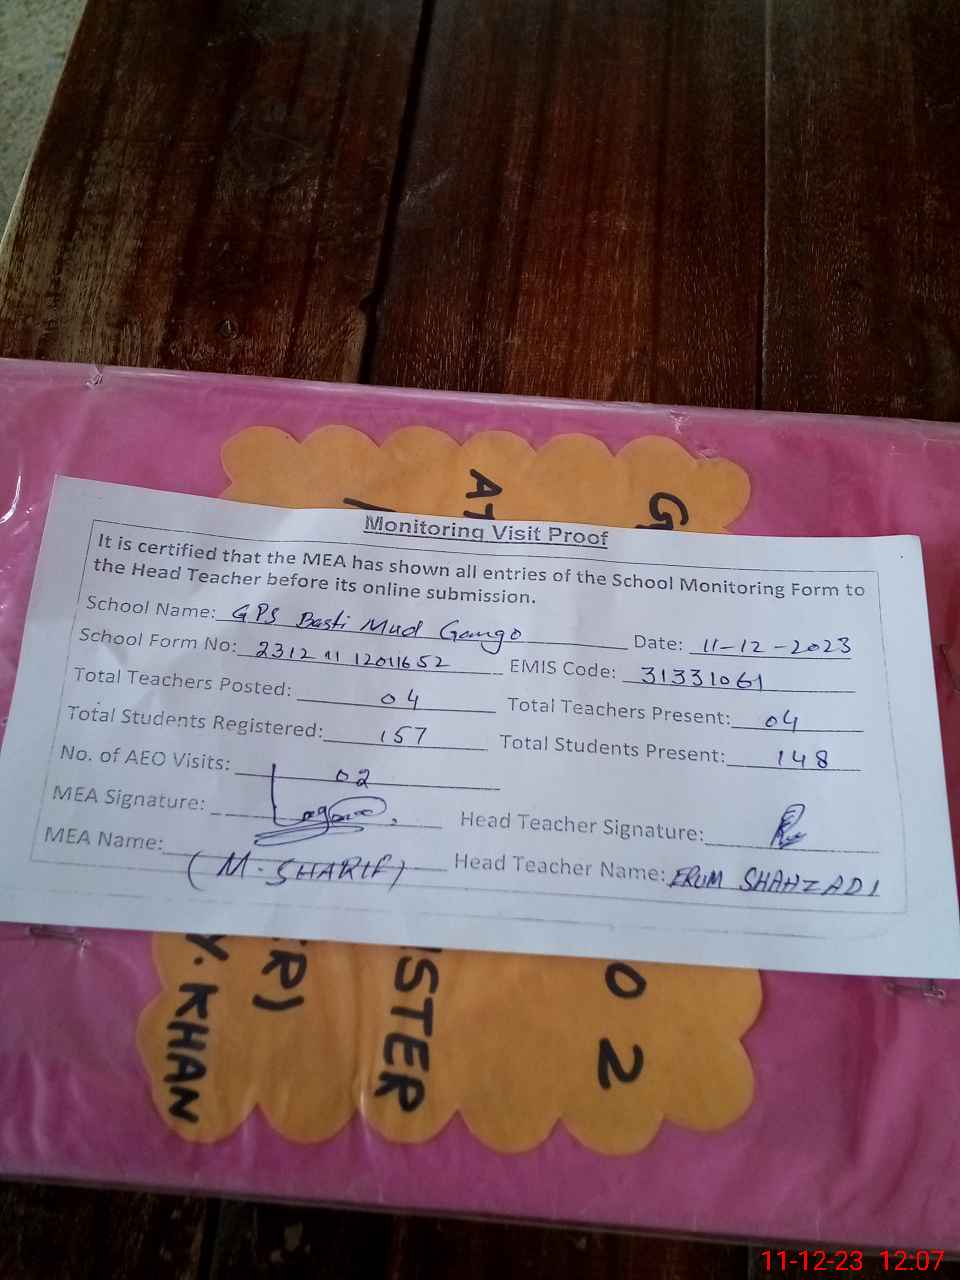 G
AT
Monitoring Visit Proof
It is certified that the MEA has shown all entries of the School Monitoring Form to
the Head Teacher before its online submission.
School Name: GPS Basti Mud Gango Date: 11-12-2023
School Form No: 2312 11 12011652 EMIS Code: 31331061
Total Teachers Posted: 04 Total Teachers Present: 04
Total Students Registered: 157 Total Students Present: 148
No. of AEO Visits: 02
MEA Signature: Head Teacher Signature:
MEA Name: (M. SHARIF) Head Teacher Name: ERUM SHAHZADI
O 2
ISTER
ER)
Y. KHAN
11-12-23 12:07